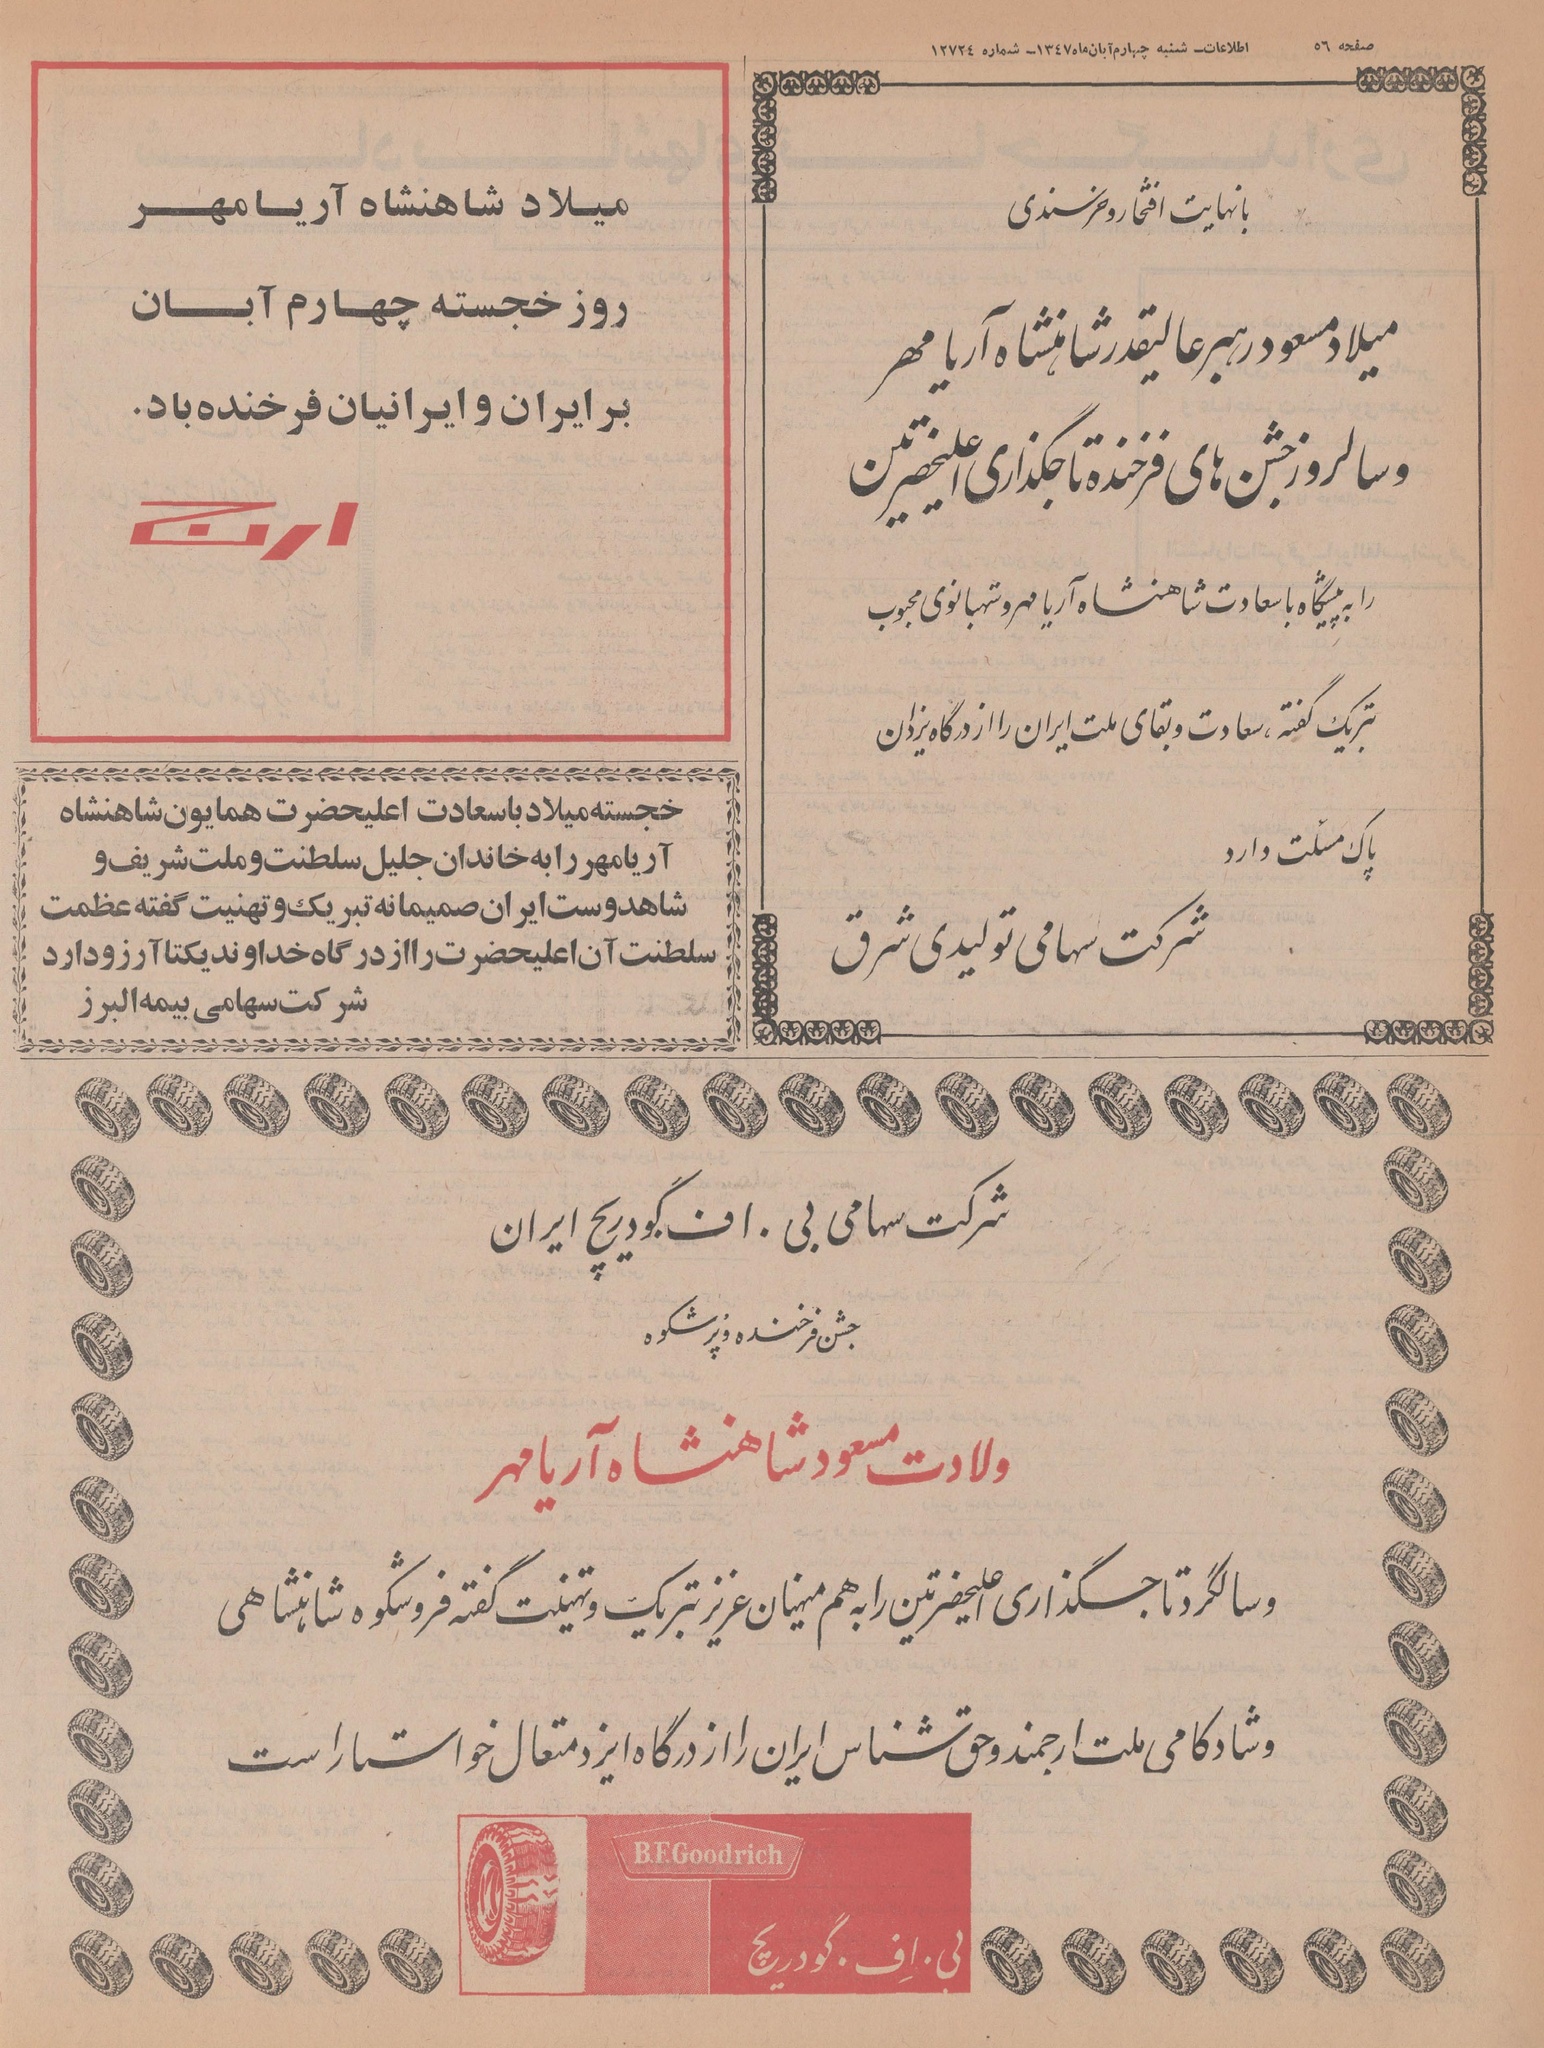 صفحه ٥٦
اطلاعات ـ شنبه چهارم آبان ماه ١٣٤٧ ـ شماره ١٢٧٢٤
با نهایت افتخار و خرسندی
میلاد مسعود رهبر عالیقدر شاهنشاه آریامهر
و سالروز جشن های فرخنده تاجگذاری اعلیحضرتین
را به پیشگاه با سعادت شاهنشاه آریامهر و شهبانوی محبوب
تبریک گفته، سعادت و بقای ملت ایران را از درگاه یزدان
پاک مسئلت دارد
شرکت سهامی تولیدی شرق
میلاد شاهنشاه آریامهر
روز خجسته چهارم آبان
بر ایران و ایرانیان فرخنده باد.
ارج
خجسته میلاد با سعادت اعلیحضرت همایون شاهنشاه
آریامهر را به خاندان جلیل سلطنت و ملت شریف و
شاهدوست ایران صمیمانه تبریک و تهنیت گفته عظمت
سلطنت آن اعلیحضرت را از درگاه خداوند یکتا آرزو دارد
شرکت سهامی بیمه البرز
شرکت سهامی بی . اف . گودریچ ایران
جشن فرخنده و پرشکوه
ولادت مسعود شاهنشاه آریامهر
و سالگرد تاجگذاری اعلیحضرتین را به هم میهنان عزیز تبریک و تهنیت گفته فر و شکوه شاهنشاهی
و شادکامی ملت ارجمند و حق شناس ایران را از درگاه ایزد متعال خواستار است
B.F.Goodrich
بی . اِف . گودریچ